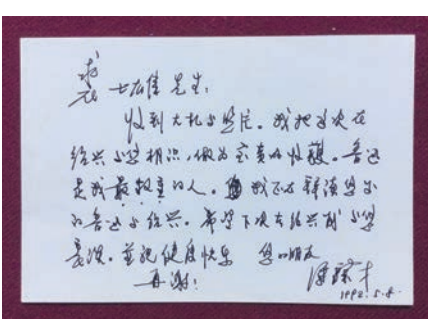 裘士雄先生:
收到大札与照片。我把这次在
绍兴与您相识,做为宝贵的收获。鲁迅
是我最敬重的人。我正在拜读您
的鲁迅与绍兴。希望下次在绍兴与您
长谈。并祝健康快乐 您的朋友
再谢!
1992.5.8.